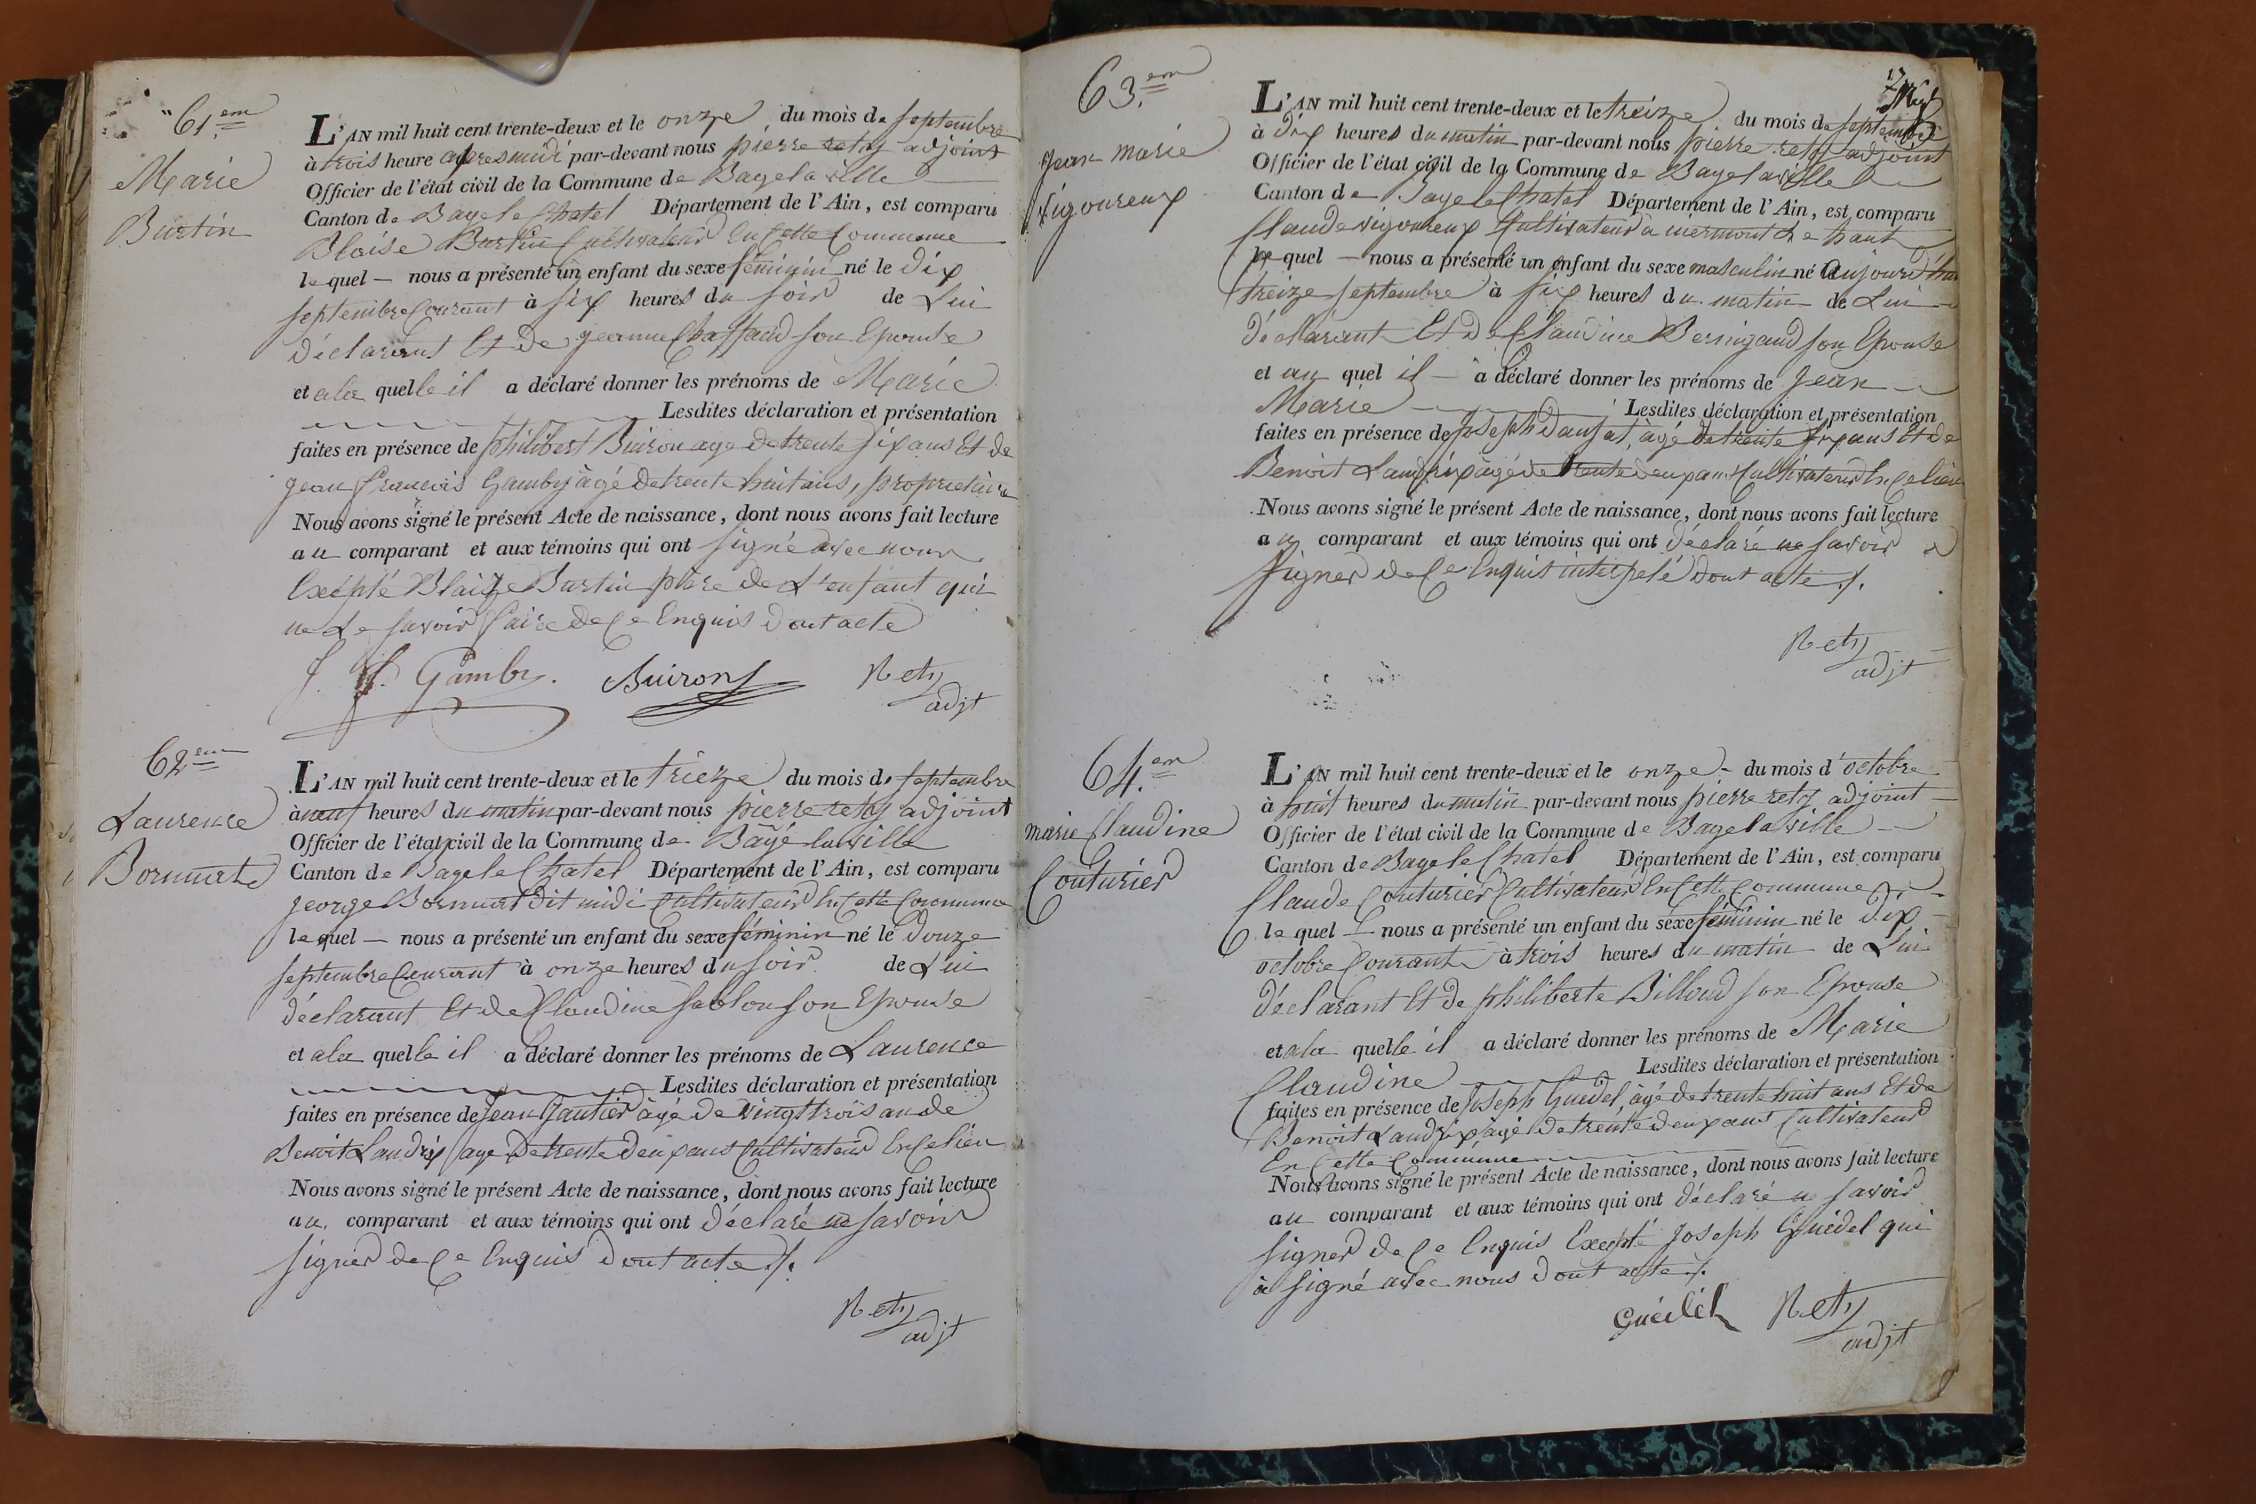 61.em
Marie
Burtin
L'AN mil huit cent trente-deux et le onze du mois de septembre
à trois heure apresmidi par-devant nous pierre rety adjoint
Officier de l'état civil de la Commune de Bagelaville
Canton de Bage le Chatel Département de l'Ain, est comparu
Bloise Burtin Cultivateur En Cette Commune
lequel — nous a présenté un enfant du sexe féminin né le dix
septembre Courant à six heures du soir de Lui
déclarant Et de jeanne Chaffaud son Epouse
et a la quelle il a déclaré donner les prénoms de Marie
Lesdites déclaration et présentation
faites en présence de philibert Buiron age de trente six ans Et de
jean francois Gamby âgé de trente huit ans, proprietaire
Nous avons signé le présent Acte de naissance, dont nous avons fait lecture
au comparant et aux témoins qui ont signé avec nous
Excépté Blaize Burtin père de L'enfant qui
ne Le savoir faire de Ce Enquis dont acte
J. f. Gamby. Buiron Rety
adjt
62em
Laurence
Bornuat
L'AN mil huit cent trente-deux et le trieze du mois de septembre
à neuf heures du matin par-devant nous pierre rety adjoint
Officier de l'état civil de la Commune de Bagé laville
Canton de Bage le Chatel Département de l'Ain, est comparu
george Bornuat dit midi Cultivateur En Cette Commune
lequel — nous a présenté un enfant du sexe féminin né le Douze
septembre Courant à onze heures du soir de Lui
déclarant Et de Claudine sablon son Epouse
et a la quelle il a déclaré donner les prénoms de Laurence
Lesdites déclaration et présentation
faites en présence de Jean Gautier âgé de vingt trois an de
Benoit Landrix age De trente Deux ans Cultivateur En Ce lieu
Nous avons signé le présent Acte de naissance, dont nous avons fait lecture
au comparant et aux témoins qui ont déclaré ne savoir
signer de Ce Enquis dont acte ./.
Rety
adjt
17
63.em
Jean marie
Vigoureux
L'AN mil huit cent trente-deux et le treize du mois de septembre
à dix heures du matin par-devant nous pierre rety adjoint
Officier de l'état civil de la Commune de Bagelaville
Canton de Bage le Chatel Département de l'Ain, est comparu
Claude vigoureux Cultivateur a
le quel — nous a présenté un enfant du sexe masculin né Aujourd'hui
treize septembre à six heures du matin de Lui
déclarant Et De Claudine Bernigaud son Epouse
et au quel il — a déclaré donner les prénoms de Jean
Marie Lesdites déclaration et présentation
faites en présence de Joseph Danfat, âgé de trente six ans Et de
Benoit Landrix âgé de trente deux ans Cultivateur En Ce lieu
Nous avons signé le présent Acte de naissance, dont nous avons fait lecture
au comparant et aux témoins qui ont déclaré ne savoir
signer de Ce Enquis interpelé dont acte ./.
Rety
adjt
64.em
marie Claudine
Couturier
L'AN mil huit cent trente-deux et le onze du mois d'octobre
à huit heures du matin par-devant nous pierre rety adjoint
Officier de l'état civil de la Commune de Bagelaville
Canton de Bage le Chatel Département de l'Ain, est comparu
Claude Couturier Cultivateur En Cette Commune
le quel — nous a présenté un enfant du séxe féminin né le dix
octobre Courant à trois heures du matin de Lui
déclarant Et de philiberte Billoud son Epouse
et a la quelle il a déclaré donner les prénoms de Marie
Claudine Lesdites déclaration et présentation
faites en présence de Joseph Guedel, âgé de trente huit ans Et de
Benoit Landrix âgé de trente deux ans Cultivateur
En Cette Commune
Nous avons signé le présent Acte de naissance, dont nous avons fait lecture
au comparant et aux témoins qui ont déclaré ne savoir
signer de Ce Enquis Excepté Joseph Guédel qui
à signé avec nous dont acte ./.
Guédel Rety
adjt